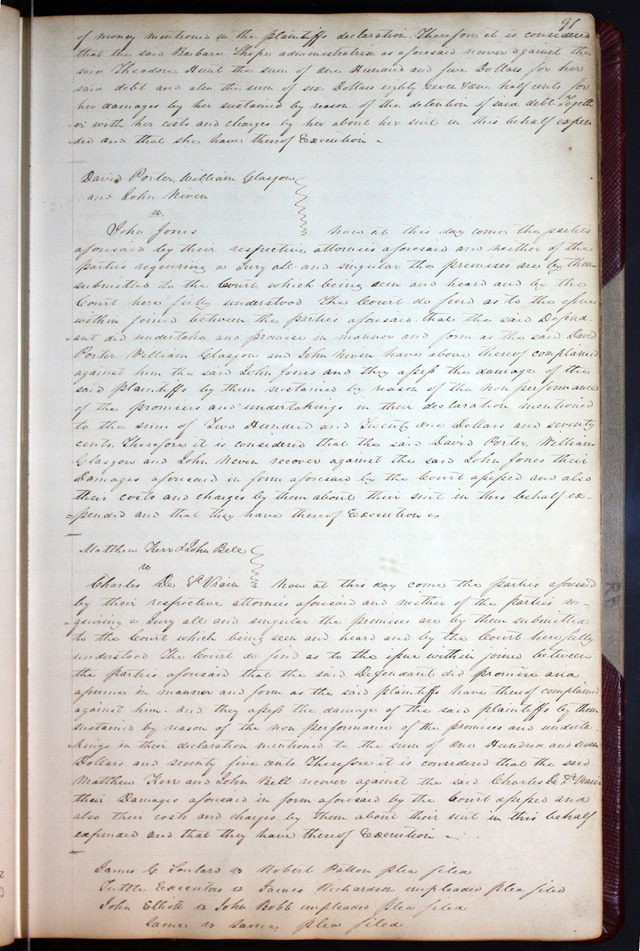 91
of money mentioned in the plaintiffs declaration. Therefore it is considered
that the said Barbara Shope administratrix as aforesaid recover against the
said Theodore Hunt the sum of one Hundred and five Dollars for her
said debt and also the sum of six Dollars eighty seven & one half cents for
her damages by her sustained by reason of the detention of said debt togeth
er with her costs and charges by her about her suit in this behalf expen
ded and that she have thereof Execution.
David Porter, William Glasgow
and John Niven
vs
John Jones Now at this day come the parties
aforesaid by their respective attornies aforesaid and neither of the
parties requiring a Jury all and singular the premises are by them
submitted to the Court which being seen and heard and by the
Court here fully understood The Court do find as to the issue
within joined between the parties aforesaid that the said Defend
ant did undertake and promise in manner and form as the said David
Porter, William Glasgow and John Neven have above thereof complained
against him the said John Jones and they assess the damage of the
said plaintiffs by them sustained by reason of the non performance
of the promises and undertakings in their declaration mentioned
to the sum of Two Hundred and Twenty one Dollars and seventy
cents. Therefore it is considered that the said David Porter, William
Glasgow and John Nevin recover against the said John Jones their
Damages aforesaid in form aforesaid by the Court assessed and also
their costs and charges by them about their suit in this behalf ex-
pended and that they have thereof Execution
Matthew Kerr & John Bell
vs
Charles De St Vrain Now at this day come the parties aforesaid
by their respective attornies aforesaid and neither of the parties re-
quiring a Jury all and singular the premises are by them submitted
to the Court which being seen and heard and by the Court here fully
understood The Court do find as to the issue within joined between
the parties aforesaid that the said Defendant did promise and
assume in manner and form as the said plaintiffs have thereof complained
against him. And they assess the damage of the said plaintiffs by them
sustained by reason of the non performance of the promises and underta
kings in their declaration mentioned to the sum of One Hundred and seven
Dollars and seventy five cents Therefore it is considered that the said
Matthew Kerr and John Bell recover against the said Charles De St Vrain
their Damages aforesaid in form aforesaid by the Court assessed and
also their costs and charges by them about their suit in this behalf
expended and that they have thereof Execution.
James G Soulard vs Robert Patton plea filed
Tuttle Executors vs James Richardson impleaded plea filed
John Elliott vs John Bobb impleaded plea filed
Same vs Same plea filed